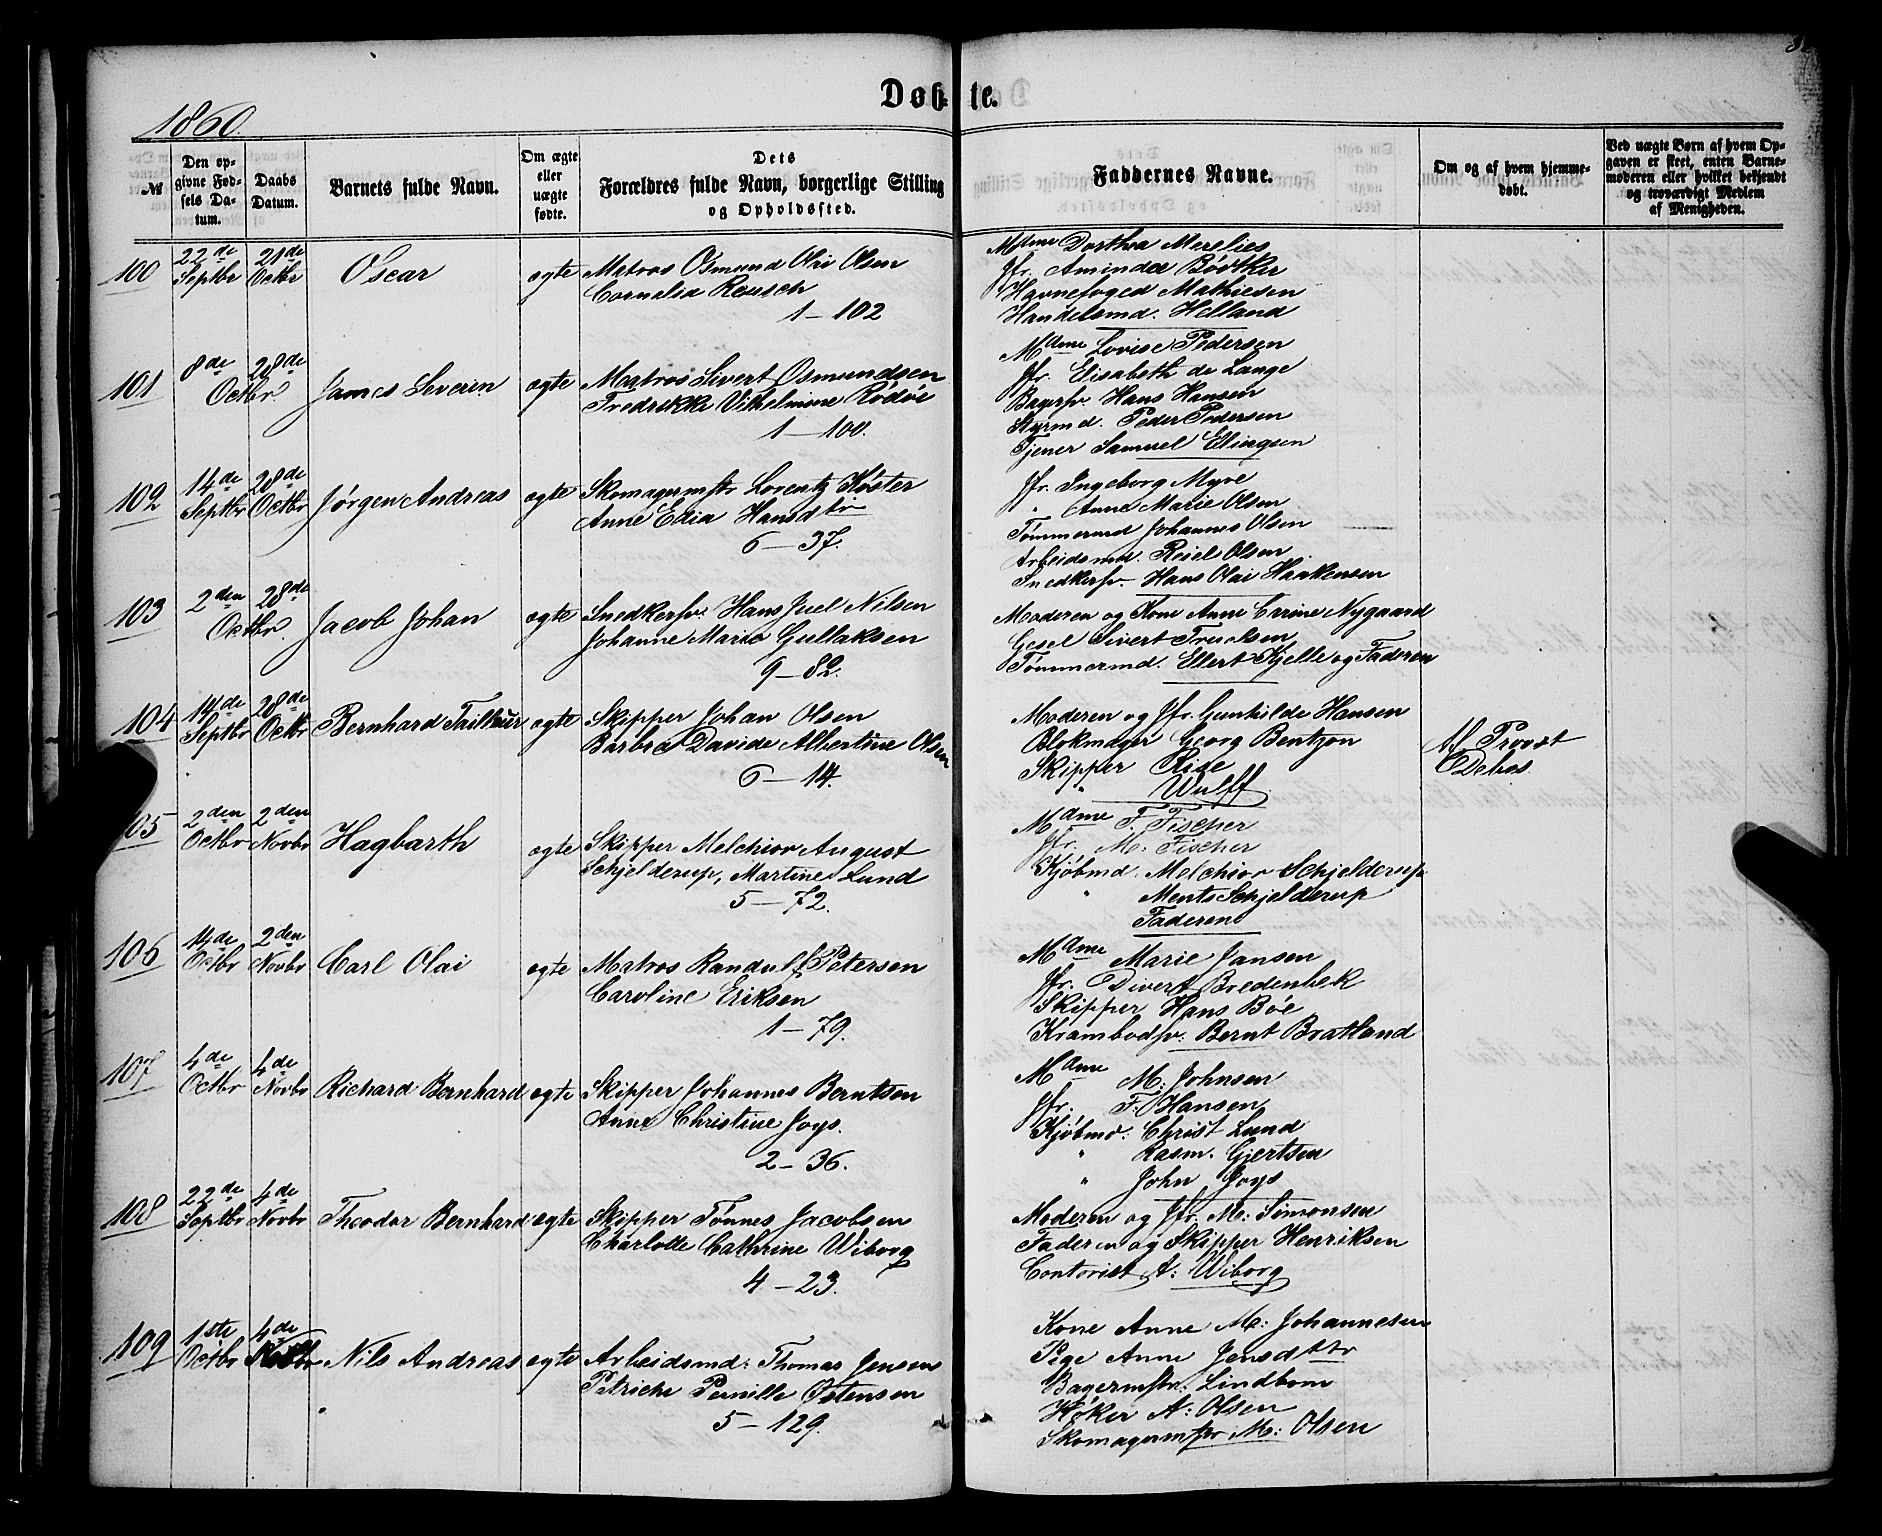 1860.
Døb-te.
№
Den op-
givne Fød-
sels Da-
tum.
Daabs
Datum.
Barnets fulde Navn.
Om ægte
eller
uægte
fødte.
Dets
Forældres fulde Navn, borgerlige Stilling
og Opholdssted.
Faddernes Navne.
Om og af hvem hjemme-
døbt.
Ved uægte Børn af hvem Op-
gaven er skeet, enten Barne-
moderen eller hvilket bekjendt
og troværdigt Medlem
af Menigheden.
100
22de Septbr
21de Octbr
Oscar
ægte
Matros Osmund Olai Olsen
Cornelia Reusch
1-102
Mdme Dorthea Merelies
Jfr. Aminda Bödtker
Havnefoged Mathiesen
Handelsmd. Helland
101
8de
28de
Octbr.
James Severin
ægte
Matros Sivert Osmundsen
Fredrikke Vilhelmine Rödöe
1-100.
Mdme Lovise Pedersen
Jfr. Elisabeth de Lange
Bagersv. Hans Hansen
Styrmd. Peder Pedersen
Tjener Samuel Ellingsen
102
14de Septbr
28de Octbr
Jørgen Andreas
ægte
Skomagermstr Lorentz Köster
Anne Edia Hansdtr
6-37.
Jfr. Ingeborg Myre
" Anne Marie Olsen
Tømmermd Johannes Olsen
Arbeidsmd. Reiel Olsen
Snedkersv. Hans Olai Haakensen
103
2den
28de
Octbr.
Jacob Johan
ægte
Snedkersv. Hans Juel Nilsen
Johanne Marie Gullaksen
9-82.
Moderen og Kone Anne Cerine Nygaard
Gesel Sivert Truelsen
Tømmermd. Ellert Kjelle og Faderen
104
14de Septbr
28de Octbr
Bernhard
ægte
Skipper Johan Olsen
Barbra Davide Albertine Olsen
6-14.
Moderen og Jfr. Gunhilde Hansen
Blokmager Georg Bentzon
Skipper Rise
" Wulff
Af Provst
Debes.
105
2den Octbr
2den Novbr
Hagbarth
ægte
Skipper Melchior August
Schjelderup, Martine Lund
5-72.
Mdme F. Fischer
Jfr. M: Fischer
Kjöbmd. Melchior Schjelderup
" Ments Schjelderup
Faderen
106
14de Octbr
2den Novbr
Carl Olai
ægte
Matros Randulf Petersen
Caroline Eriksen
1-79.
Mdme Marie Jansen
Jfr. Divert Bredenbek
Skipper Hans Böe
Krambodsv. Bernt Bratland
107
4de Octbr
4de Novbr
Richard Bernhard
ægte
Skipper Johannes Berntsen
Anne Christine Joys.
2-36.
Mdme M: Johnsen
Jfr. F: Hansen
Kjöbmd: Christ Lund
" Rasm. Gjertsen
" John Joys
108
22de Septbr
4de Novbr
Theodor Bernhard
ægte
Skipper Tønnes Jacobsen
Charlotte Cathrine Wiborg
4-23.
Moderen og Jfr. M: Simonsen
Faderen og Skipper Henriksen
Contorist A: Wiborg
109
1ste Octbr
4de
Nils Andreas
ægte
Arbeidsmd: Thomas Jensen
Petriche Pernille Østensen
5-129.
Kone Anne M: Johannesen
Pige Anne Jensdtr
Bagermstr. Lindbom
Høker A: Olsen
Skomagermstr M: Olsen